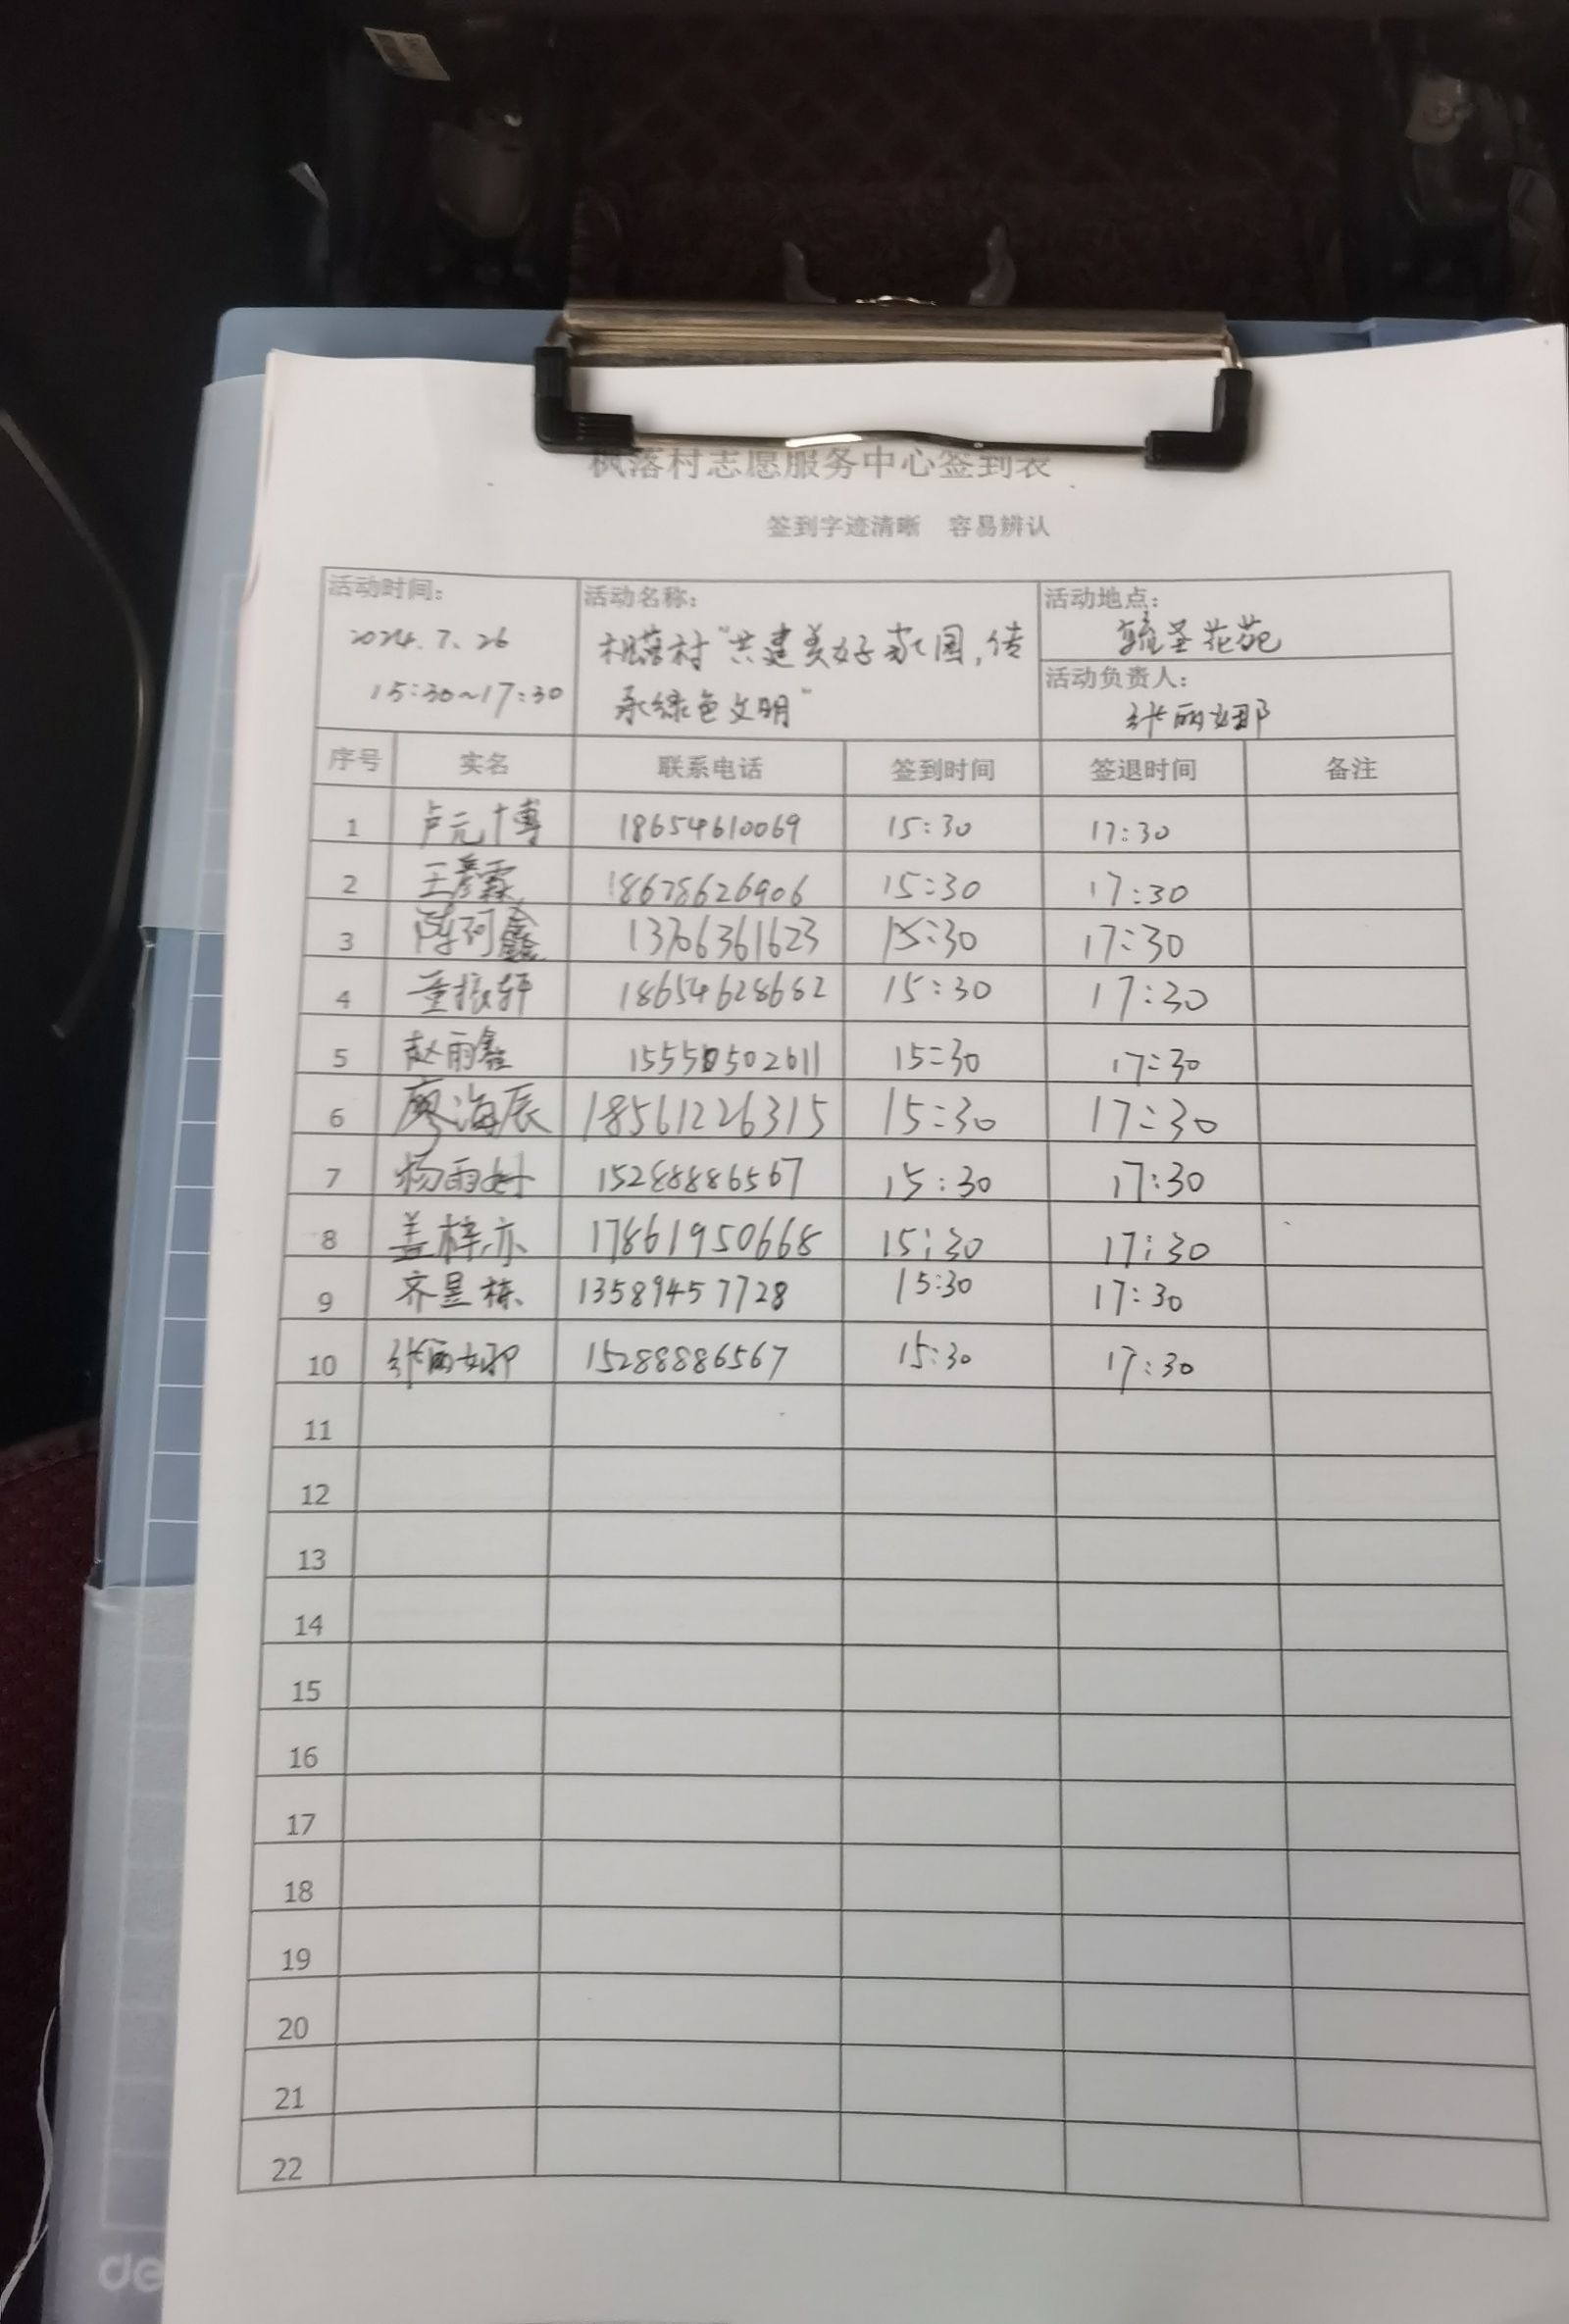 枫落村志愿服务中心签到表
签到字迹清晰 容易辨认
活动时间:
2024.7.26
15:30~17:30
活动名称:
枫落村"共建美好家园,传
承绿色文明"
活动地点:
毓圣花苑
活动负责人:
张丽娜
序号 实名 联系电话 签到时间 签退时间 备注
1 卢元博 18654610069 15:30 17:30
2 王彦霖 18678626906 15:30 17:30
3 陈珂鑫 13706361623 15:30 17:30
4 董振轩 18654628682 15:30 17:30
5 赵雨鑫 15550502611 15:30 17:30
6 廖海辰 18561226315 15:30 17:30
7 杨雨 15288886567 15:30 17:30
8 盖梓亦 17861950668 15:30 17:30
9 齐昱栋 13589457728 15:30 17:30
10 张丽娜 15288886567 15:30 17:30
11
12
13
14
15
16
17
18
19
20
21
22
de